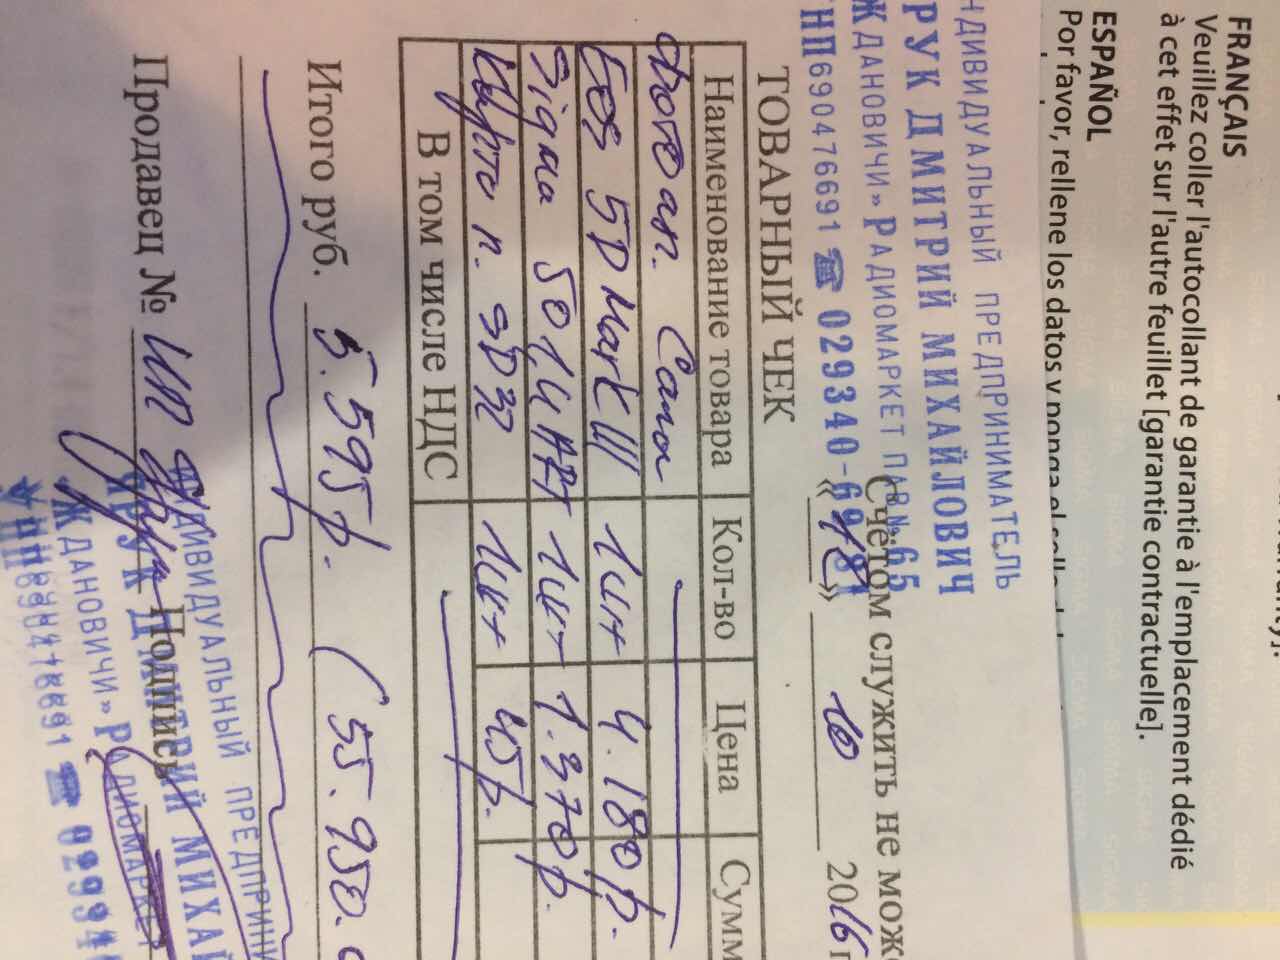 FRANÇAIS
Veuillez coller l'autocollant de garantie à l'emplacement dédié
à cet effet sur l'autre feuillet [garantie contractuelle].
ESPAÑOL
Por favor, rellene los datos y ponga el sello
НДИВИДУАЛЬНЫЙ ПРЕДПРИНИМАТЕЛЬ
РУК ДМИТРИЙ МИХАЙЛОВИЧ
ЖДАНОВИЧИ» РАДИОМАРКЕТ ПАВ№65
НП690476691 ☎ 029340-6981
Счетом служить не може
«18» 10 2016 г
ТОВАРНЫЙ ЧЕК
Наименование товара Кол-во Цена Сумм
Фотоап. Canon
EOS 5D Mark III 1шт 4.180р.
Sigma 50 1,4 ART 1шт 1.370р.
Карта п. SD32 1шт 45р.
В том числе НДС
Итого руб. 5.595р. (55.950.
Продавец № ИП Друк Подпись
ИНДИВИДУАЛЬНЫЙ ПРЕДПРИНИ
ДРУК ДМИТРИЙ МИХАЙ
ЖДАНОВИЧИ» РАДИОМАРКЕ
УНП690476691 ☎ 02934
SIGMA SIGMA SIGMA